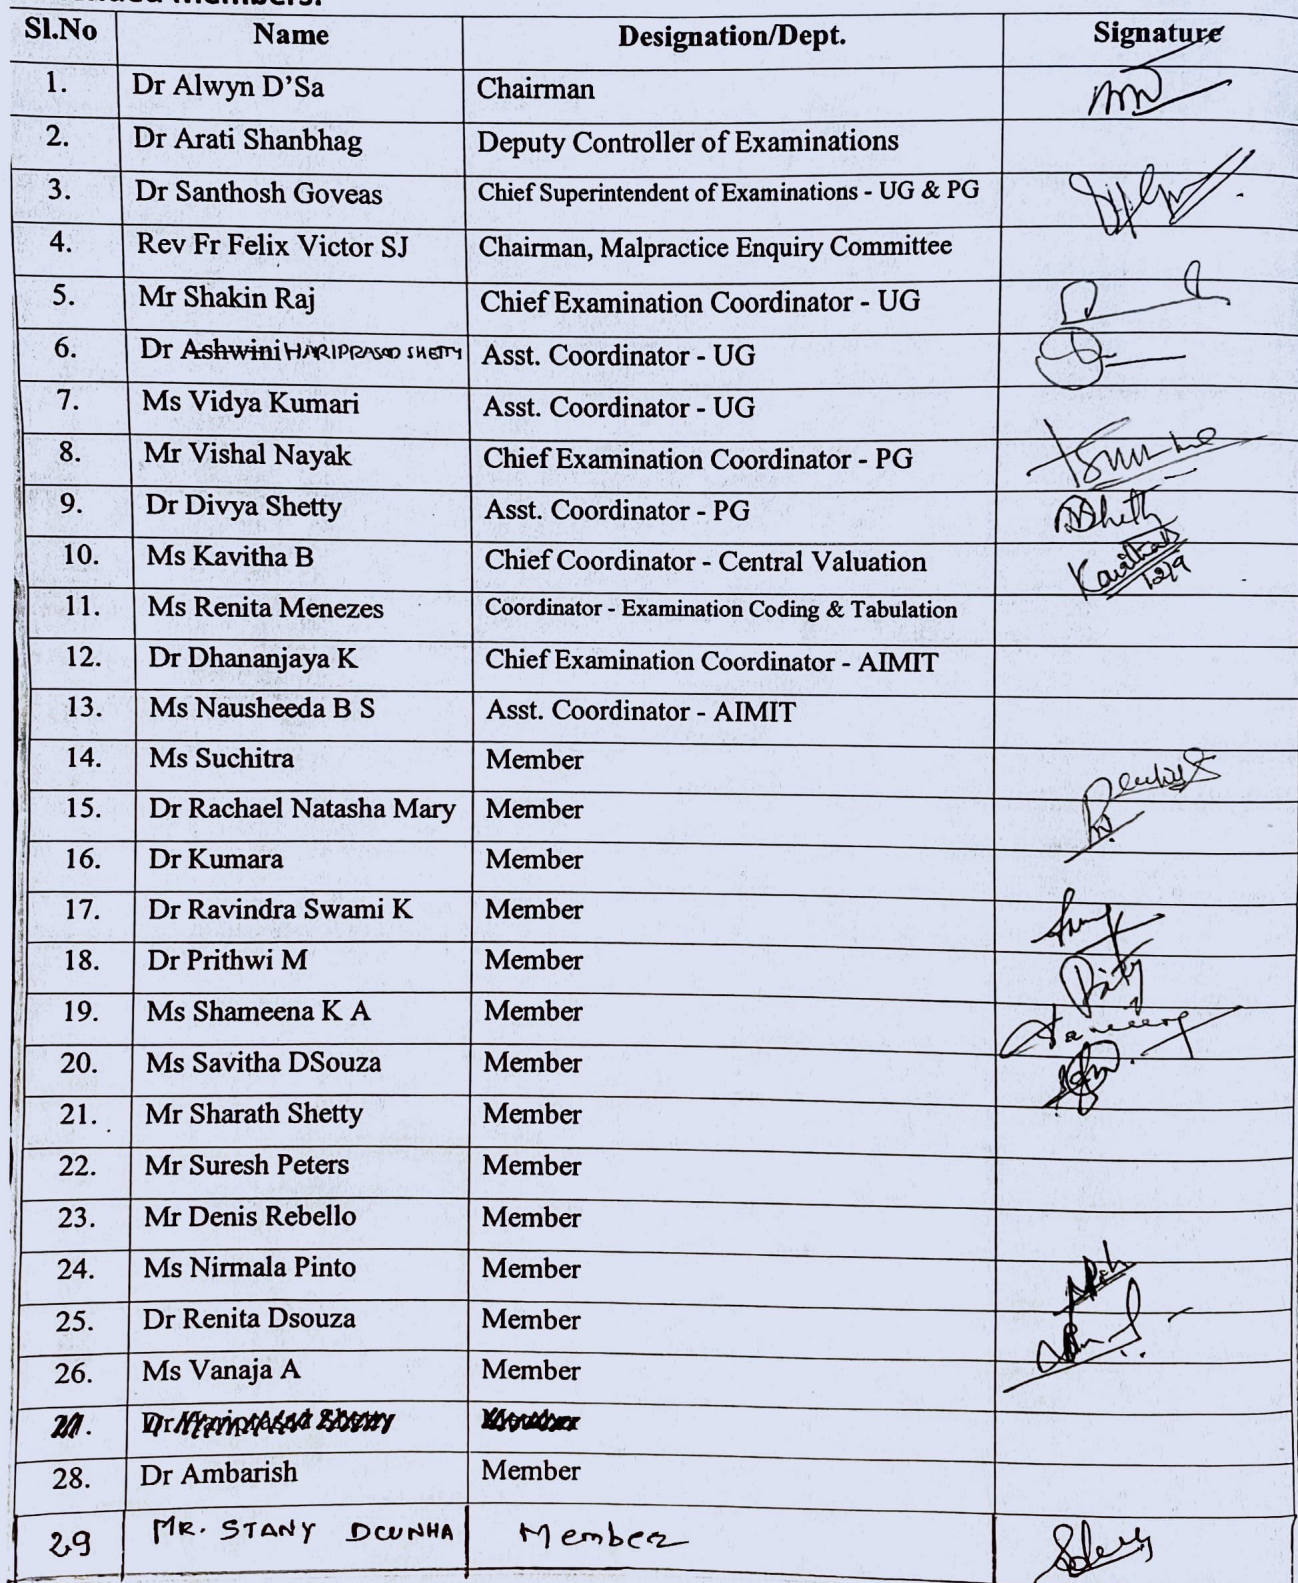 Members:
Sl.No Name Designation/Dept. Signature
1. Dr Alwyn D'Sa Chairman
2. Dr Arati Shanbhag Deputy Controller of Examinations
3. Dr Santhosh Goveas Chief Superintendent of Examinations - UG & PG
4. Rev Fr Felix Victor SJ Chairman, Malpractice Enquiry Committee
5. Mr Shakin Raj Chief Examination Coordinator - UG
6. Dr Ashwini HARIPRASAD SHETTY Asst. Coordinator - UG
7. Ms Vidya Kumari Asst. Coordinator - UG
8. Mr Vishal Nayak Chief Examination Coordinator - PG
9. Dr Divya Shetty Asst. Coordinator - PG
10. Ms Kavitha B Chief Coordinator - Central Valuation
11. Ms Renita Menezes Coordinator - Examination Coding & Tabulation
12. Dr Dhananjaya K Chief Examination Coordinator - AIMIT
13. Ms Nausheeda B S Asst. Coordinator - AIMIT
14. Ms Suchitra Member
15. Dr Rachael Natasha Mary Member
16. Dr Kumara Member
17. Dr Ravindra Swami K Member
18. Dr Prithwi M Member
19. Ms Shameena K A Member
20. Ms Savitha DSouza Member
21. Mr Sharath Shetty Member
22. Mr Suresh Peters Member
23. Mr Denis Rebello Member
24. Ms Nirmala Pinto Member
25. Dr Renita Dsouza Member
26. Ms Vanaja A Member
27. Dr Hariprasad Shetty Member
28. Dr Ambarish Member
29 MR. STANY DCUNHA Member